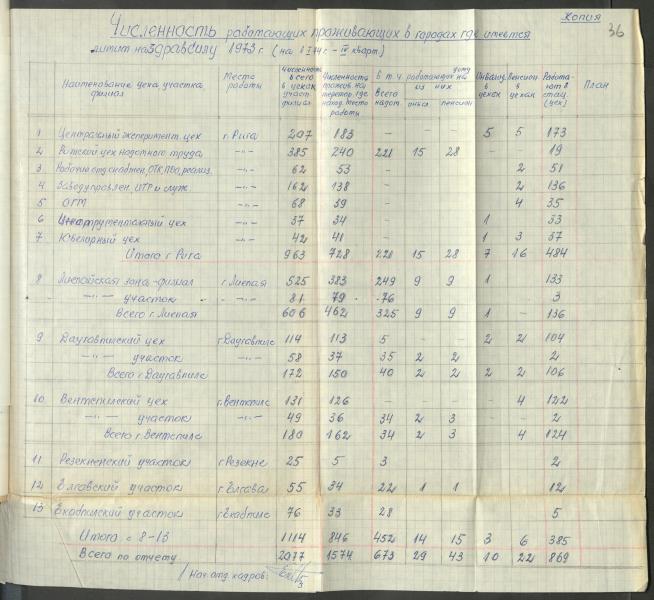 Копия
36
Численность работающих проживающих в городах где имеется
лимит на здравсилу 1973 г. (на 1 I 74 г - IV кварт.)
Наименование цеха участка филиал | Место работы | Численность всего в цехах участ. филиал | Численность прожив. на территор. где наход. место работы | в т. ч. работающих на дому | Всего надом. | из них | инвал | пенсион | Инвалид в цехах | Пенсион в цехах | Работают в стац. (цех) | План
1 Центральный эксперимент. цех г. Рига 207 183 - - - 5 5 173
2 Рижский цех надомного труда -"- 385 240 221 15 28 - - 19
3 Рабочие отд снабжен, ОТК, ПДО, реализ. -"- 62 53 - 2 51
4 Заводуправлен. ИТР и служ. -"- 162 138 - 2 136
5 ОГМ -"- 68 39 - 4 35
6 Инструментальный цех -"- 37 34 1 33
7 Ювелирный цех -"- 42 41 1 3 37
Итого г Рига 963 728 221 15 28 7 16 484
8 Лиепайская зона-филиал г Лиепая 525 383 249 9 9 1 133
-"- участок -"- 81 79 76 3
Всего г. Лиепая 606 462 325 9 9 1 - 136
9 Даугавпилский цех г. Даугавпилс 114 113 5 - - 2 2 104
-"- участок -"- 58 37 35 2 2 2
Всего г. Даугавпилс 172 150 40 2 2 2 2 106
10 Вентспилский цех г. Вентспилс 131 126 - - - 4 122
-"- участок -"- 49 36 34 2 3 - 2
Всего г. Вентспилс 180 162 34 2 3 4 124
11 Резекненский участок г Резекне 25 5 3 2
12 Елгавский участок г Елгава 55 34 22 1 1 12
13 Екабпилский участок г Екабпилс 76 33 28 5
Итого с 8-13 1114 846 452 14 15 3 6 385
Всего по отчету 2077 1574 673 29 43 10 22 869
/Нач. отд. кадров: